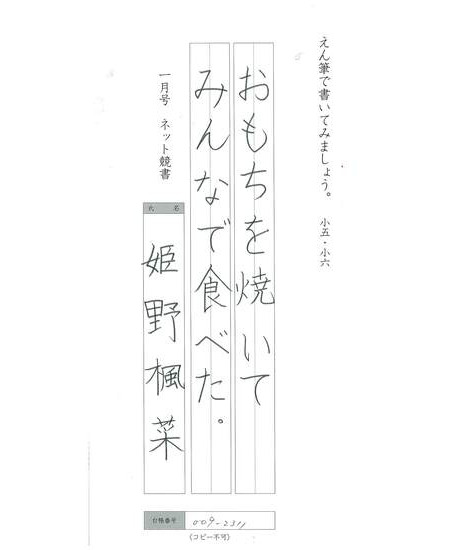 えん筆で書いてみましょう。 小五・小六
おもちを焼いて
みんなで食べた。
一月号 ネット競書
氏 名
姫野楓菜
台帳番号 009-2311
(コピー不可)